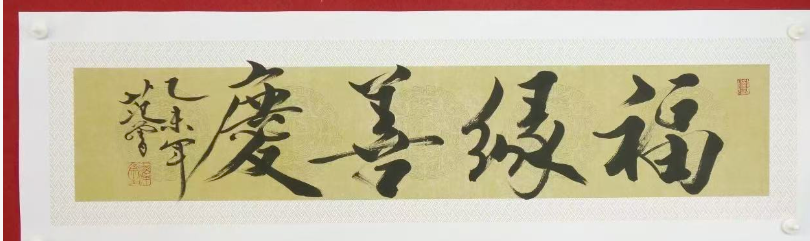 福緣善慶
乙未年